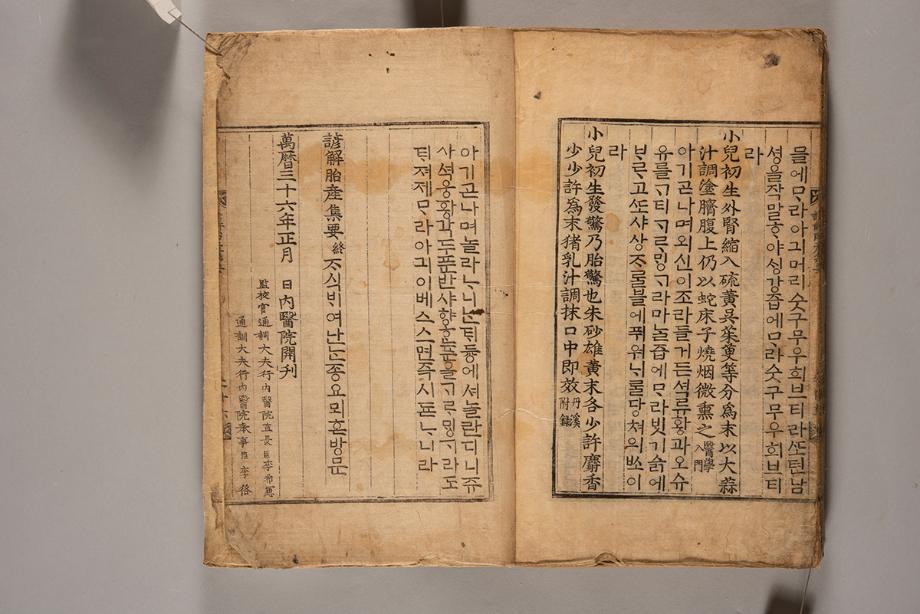 믈에 ᄆᆞ라 아긔 머리 숫구무 우희 브티라 ᄯᅩ 텬남
셩을 작말ᄒᆞ야 ᄉᆡᆼ강즙에 ᄆᆞ라 숫구무 우희 브티
라
小兒初生外腎縮入硫黃吳茱萸等分爲末以大蒜
汁調塗臍腹上仍以蛇床子燒烟微熏之 醫學入門
아기 ᄀᆞᆺ나며 외신이 조라들거든 셕류황과 오슈
유를 ᄀᆞ티 ᄀᆞᄅᆞ ᄆᆡᆼᄀᆞ라 마ᄂᆞᆯ즙에 ᄆᆞ라 ᄇᆡᆺ기슭에
ᄇᆞᄅᆞ고 ᄯᅩ 샤상ᄌᆞᄅᆞᆯ 블에 퓌워 ᄂᆡᄅᆞᆯ 당쳐의 ᄡᅬ이
라
小兒初生發驚乃胎驚也朱砂雄黃末各少許麝香
少少許爲末猪乳汁調抹口中卽效 丹溪附錄
아기 ᄀᆞᆺ나며 놀라ᄂᆞ니ᄂᆞᆫ ᄇᆡ 듕에셔 놀란디니 쥬
사 셕웅황 각 두 푼 반 샤향 ᄒᆞᆫ 푼을 ᄀᆞᄅᆞ ᄆᆡᆼᄀᆞ라 도
ᄐᆡ 져제 ᄆᆞ라 아긔 이베 스스면 즉시 됸ᄂᆞ니라
諺解胎産集要 終 ᄌᆞ식 ᄇᆡ여 난ᄂᆞᆫ 종요 뫼혼 방문
萬曆三十六年正月 日內醫院開刊
監校官通訓大夫行內醫院直長臣李希憲
通訓大夫行內醫院奉事臣李